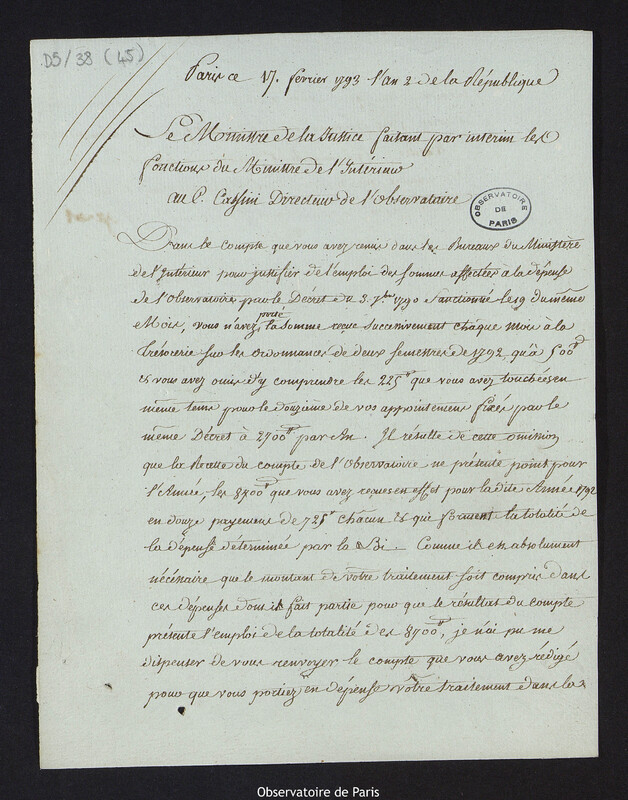 D5/38 (45)
Paris ce 17. fevrier 1793 l'an 2 de la République
Le Ministre de la Justice faisant par interim les
fonctions du Ministre de l'Intérieur
au C. Cassini Directeur de l'Observatoire
OBSERVATOIRE
DE
PARIS
Dans le compte que vous avez remis dans les Bureaux du Ministère
de l'Intérieur pour justifier de l'emploi des sommes affectées à la dépense
de l'Observatoire par le Décret du 3. 7bre 1790 Sanctionné le 19 du même
Mois, vous n'avez porté la somme reçue successivement chaque mois à la
trésorerie sur les ordonnances de deux semestres de 1792, qu'à 500#
& vous avez omis d'y comprendre les 225# que vous avez touchées en
même tems pour le douzième de vos appointemens fixés par le
même Décret à 2700# par An. Il résulte de cette omission
que la Recette du compte de l'Observatoire ne présente point pour
l'Année, les 8700# que vous avez reçues en effet pour la dite Année 1792
en douze payemens de 725# chacun & qui forment la totalité de
la dépense déterminée par la Loi. Comme il est absolument
nécessaire que le montant de votre traitement soit compris dans
ces dépenses dont il fait partie pour que le résultat du compte
présente l'emploi de la totalité des 8700#, je n'ai pu me
dispenser de vous renvoyer le compte que vous avez rédigé
pour que vous portiez en dépense votre traitement dans la
Observatoire de Paris